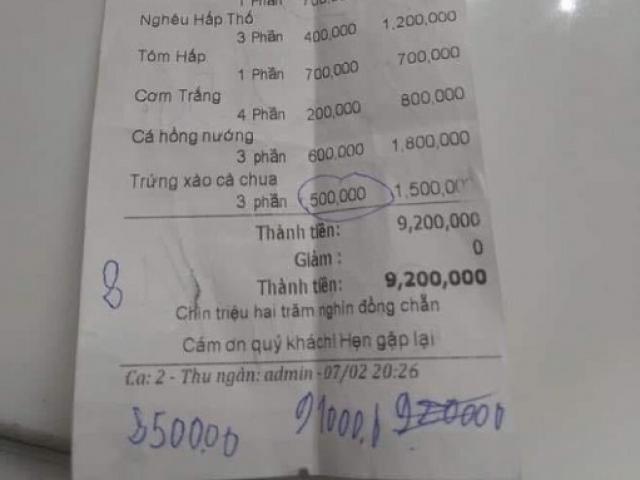 1 Phần 700,000
Nghêu Hấp Thố
3 Phần 400,000 1,200,000
Tôm Hấp
1 Phần 700,000 700,000
Cơm Trắng
4 Phần 200,000 800,000
Cá hồng nướng
3 phần 600,000 1,800,000
Trứng xào cà chua
3 phần 500,000 1,500,000
Thành tiền: 9,200,000
Giảm : 0
Thành tiền: 9,200,000
8
Chín triệu hai trăm nghìn đồng chẵn
Cám ơn quý khách! Hẹn gặp lại
Ca: 2 - Thu ngân: admin -07/02 20:26
850000